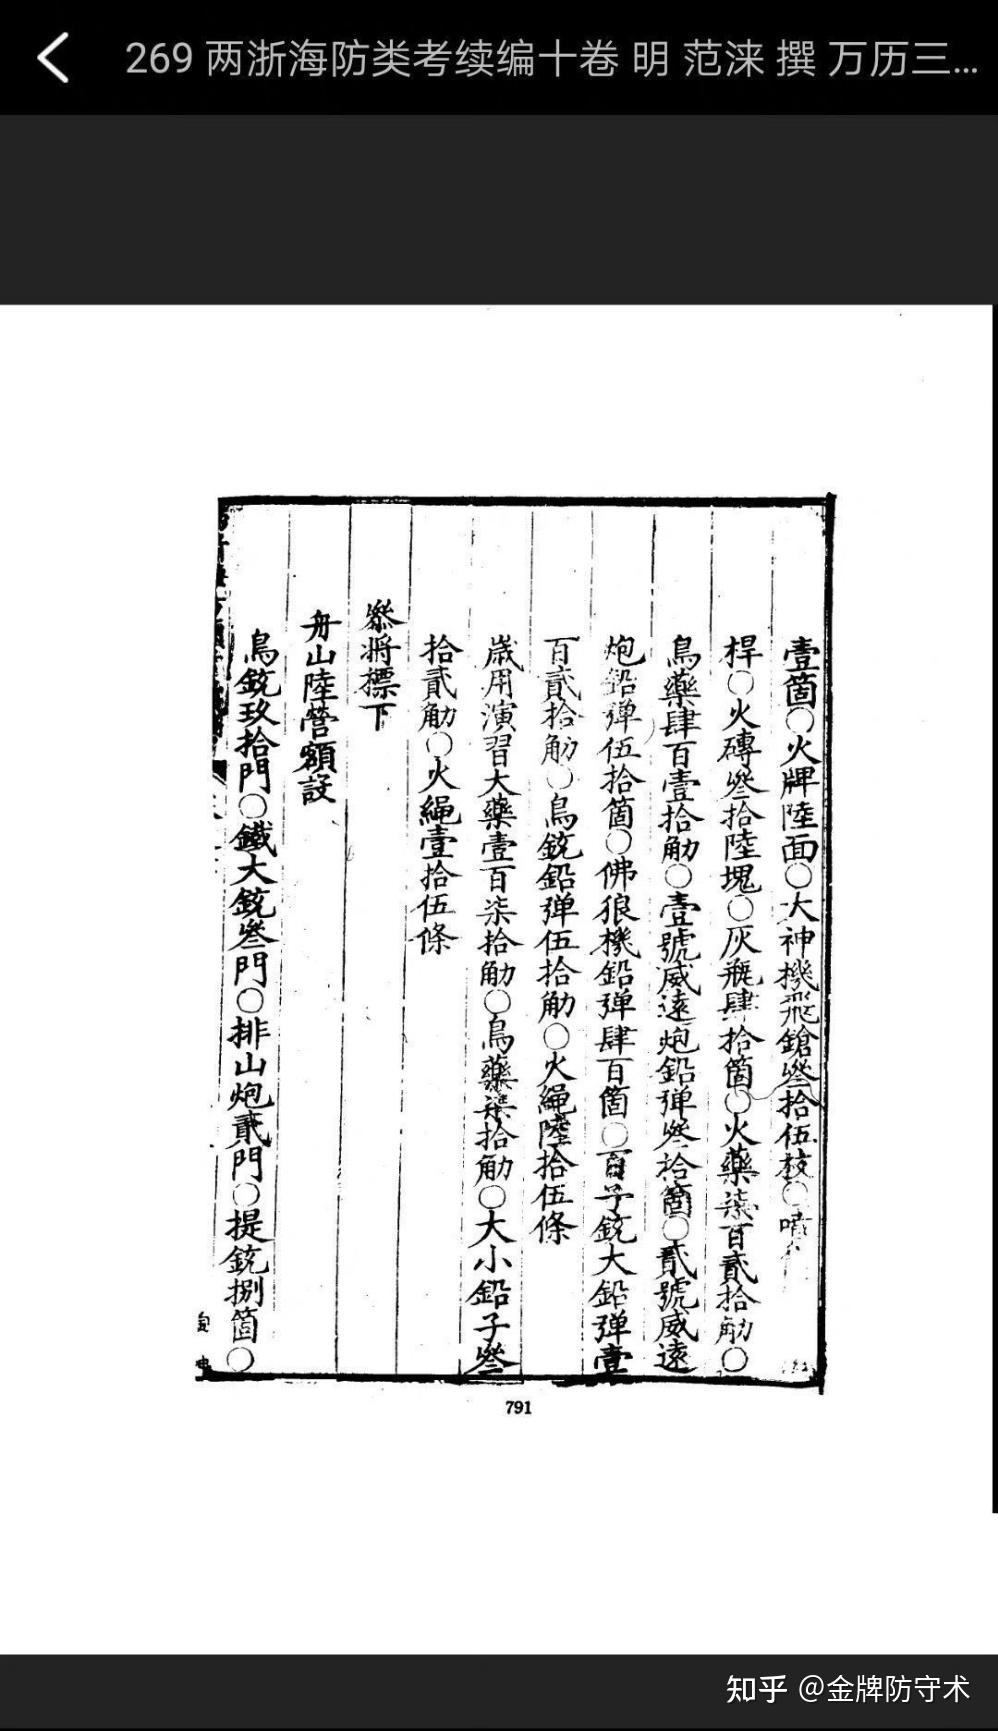 269 两浙海防类考续编十卷 明 范涞 撰 万历三...
壹箇○火牌陸面○大神機飛鎗叄拾伍枝○噴
桿○火磚叄拾陸塊○灰瓶肆拾箇○火藥柒百貳拾觔○
鳥藥肆百壹拾觔○壹號威遠炮鉛彈叄拾箇○貳號威遠
炮鉛彈伍拾箇○佛狼機鉛彈肆百箇○百子銃大鉛彈壹
百貳拾觔○鳥銃鉛彈伍拾觔○火繩陸拾伍條
歲用演習大藥壹百柒拾觔○鳥藥柒拾觔○大小鉛子叄
拾貳觔○火繩壹拾伍條
叅將摽下
舟山陸營額設
鳥銃玖拾門○鐵大銃叄門○排山炮貳門○提銃捌箇○
791
知乎 @金牌防守术